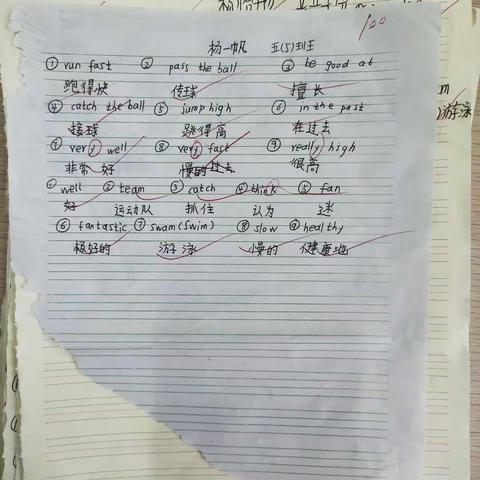 杨一帆 五(5)班 100
① run fast ② pass the ball ③ be good at
跑得快 传球 擅长
④ catch the ball ⑤ jump high ⑥ in the past
接球 跳得高 在过去
⑦ very well ⑧ very fast ⑨ really high
非常好 慢的过去 很高
① well ② team ③ catch ④ think ⑤ fan
好 运动队 抓住 认为 迷
⑥ fantastic ⑦ swam(swim) ⑧ slow ⑨ healthy
极好的 游泳 慢的 健康地
游泳